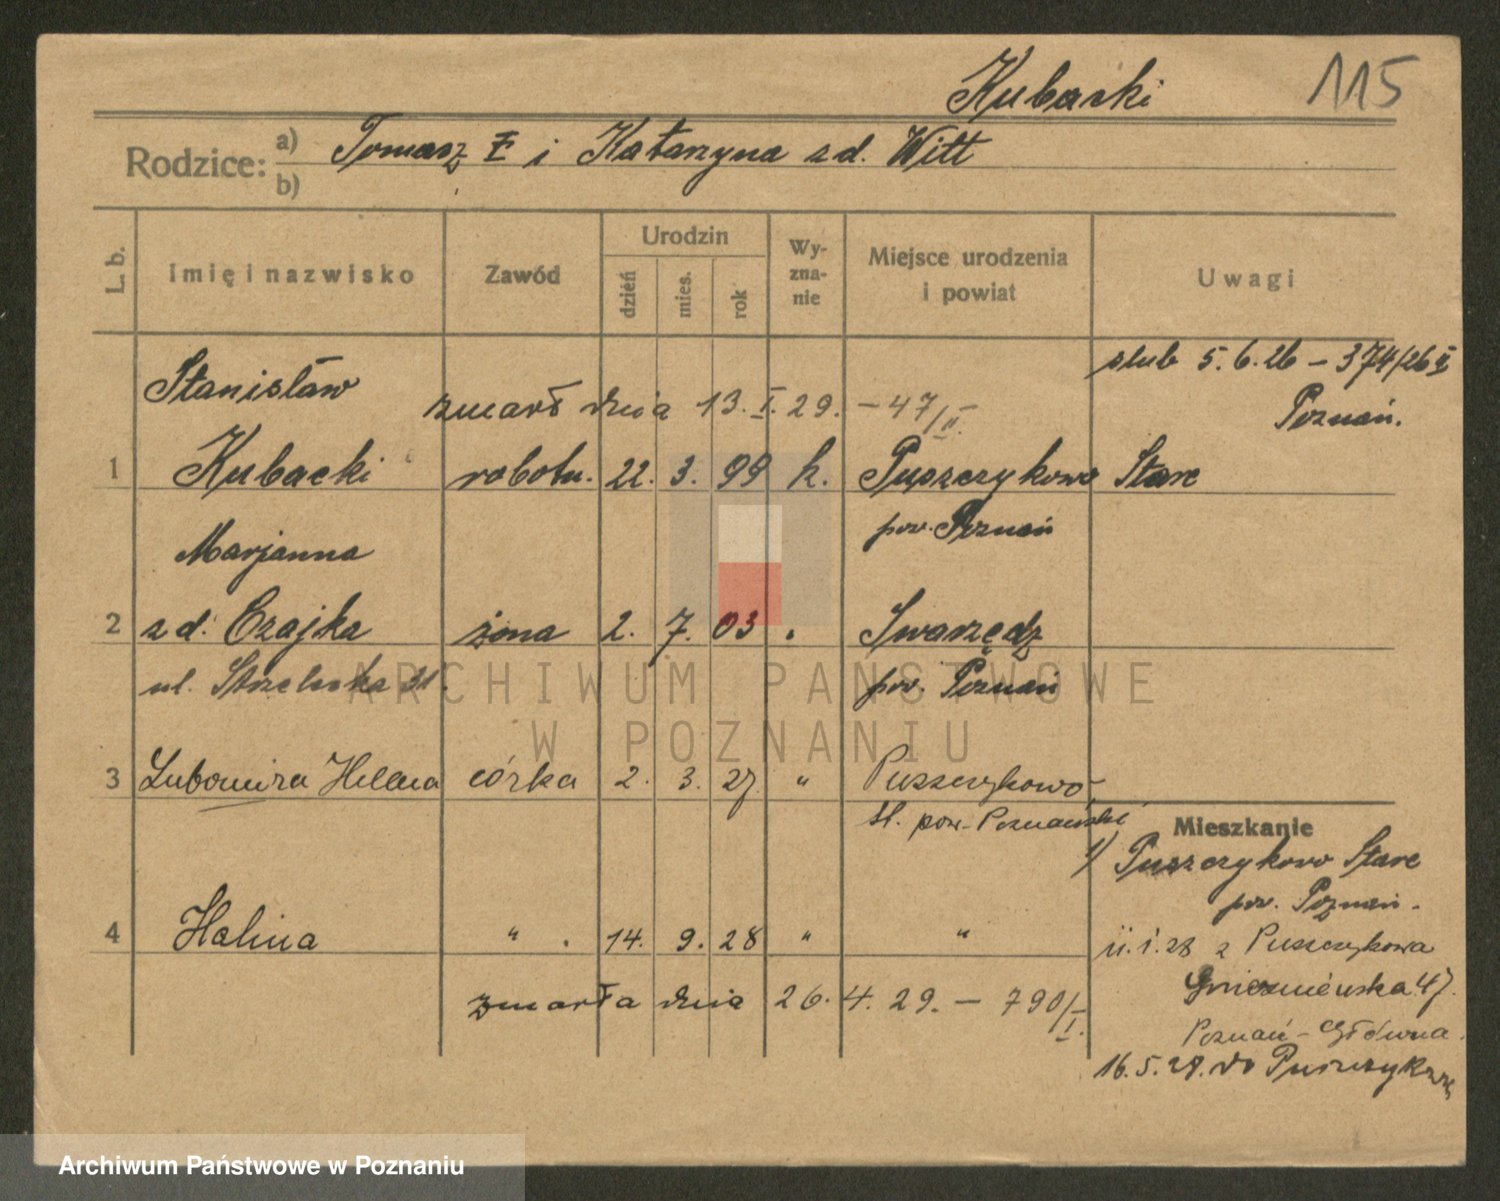 Kubacki 115
Rodzice: a) Tomasz i Katarzyna zd. Witt
b)
L. b. Imię i nazwisko Zawód Urodzin dzień mies. rok Wy-zna-nie Miejsce urodzenia i powiat Uwagi
ślub 5.6.26 – 374/26 II
Poznań.
Stanisław zmarł dnia 13. I. 29. – 47/II.
1 Kubacki robotn. 22. 3. 99 k. Puszczykowo Stare
pow. Poznań
Marjanna
2 zd. Czajka żona 2. 7. 03 „ Swarzędz
ul. 31. pow. Poznań
ARCHIWUM PAŃSTWOWE
W POZNANIU
3 Lubomira Helena córka 2. 3. 27. „ Puszczykowo
St. pow. Poznański
Mieszkanie
1/ Puszczykowo Stare
pow. Poznań.
4 Halina „ . 14. 9. 28 „ „
11.1.28 z Puszczykowa
Gnieźnieńska 47.
zmarła dnia 26. 4. 29. – 790/I.
Poznań – Główna.
16.5.28. do
Archiwum Państwowe w Poznaniu